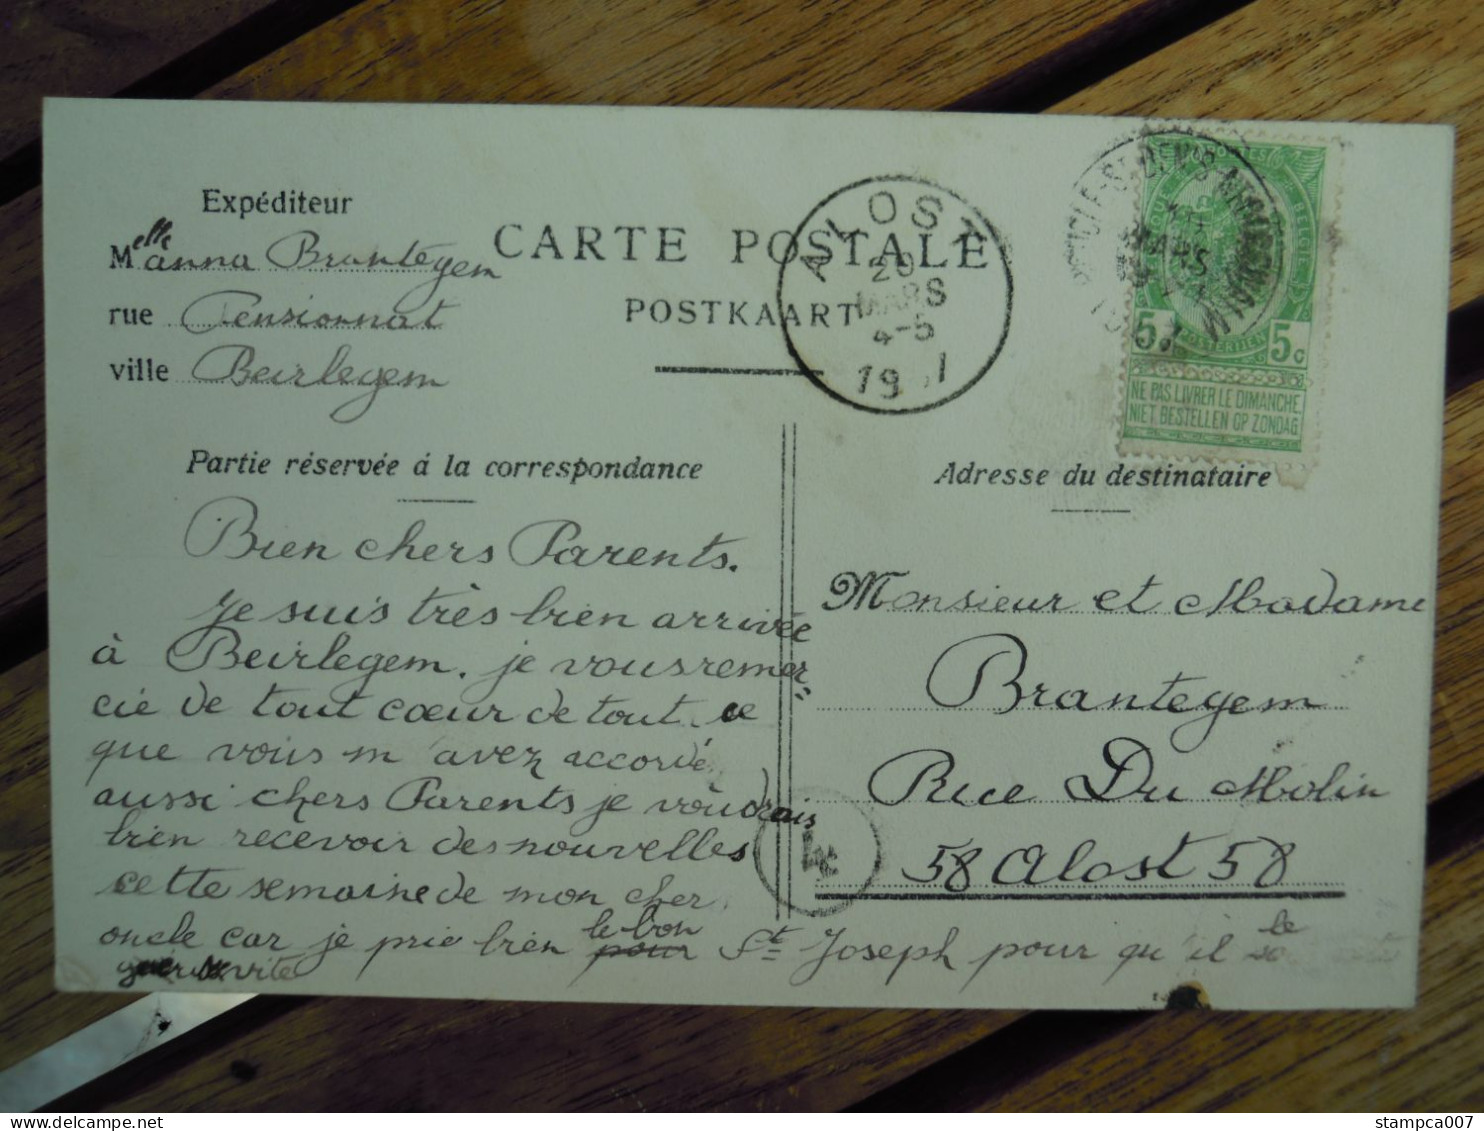 Expéditeur
Melle anna Brantegem
rue Pensionnat
ville Beirlegem
CARTE POSTALE
POSTKAART
ALOST
20
MARS
4-5
19 1
MARS
5 5c
NE PAS LIVRER LE DIMANCHE
NIET BESTELLEN OP ZONDAG
Partie réservée á la correspondance
Bien chers Parents.
Je suis très bien arrivée
à Beirlegem. je vous remer=
cie de tout cœur de tout ce
que vous m'avez accordé
aussi chers Parents je voudrais
bien recevoir des nouvelles
cette semaine de mon cher
oncle car je prie bien le bon pour St Joseph pour qu'il le
vite
Adresse du destinataire
Monsieur et Madame
Brantegem
Rue Du Molin
58 Alost 58
© www.delcampe.net
stampca007